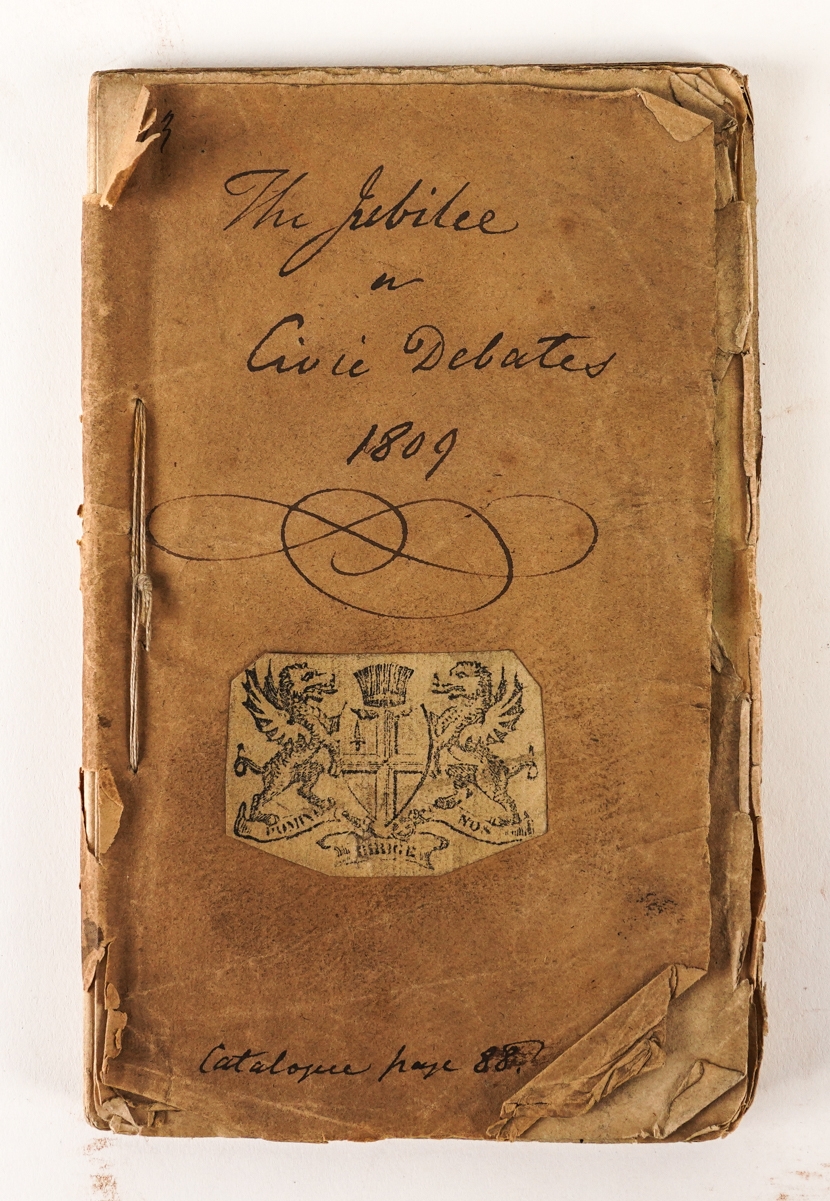 The Jubilee
or
Civic Debates
1809
DOMINE
NOS
DIRIGE
Catalogue page 88.